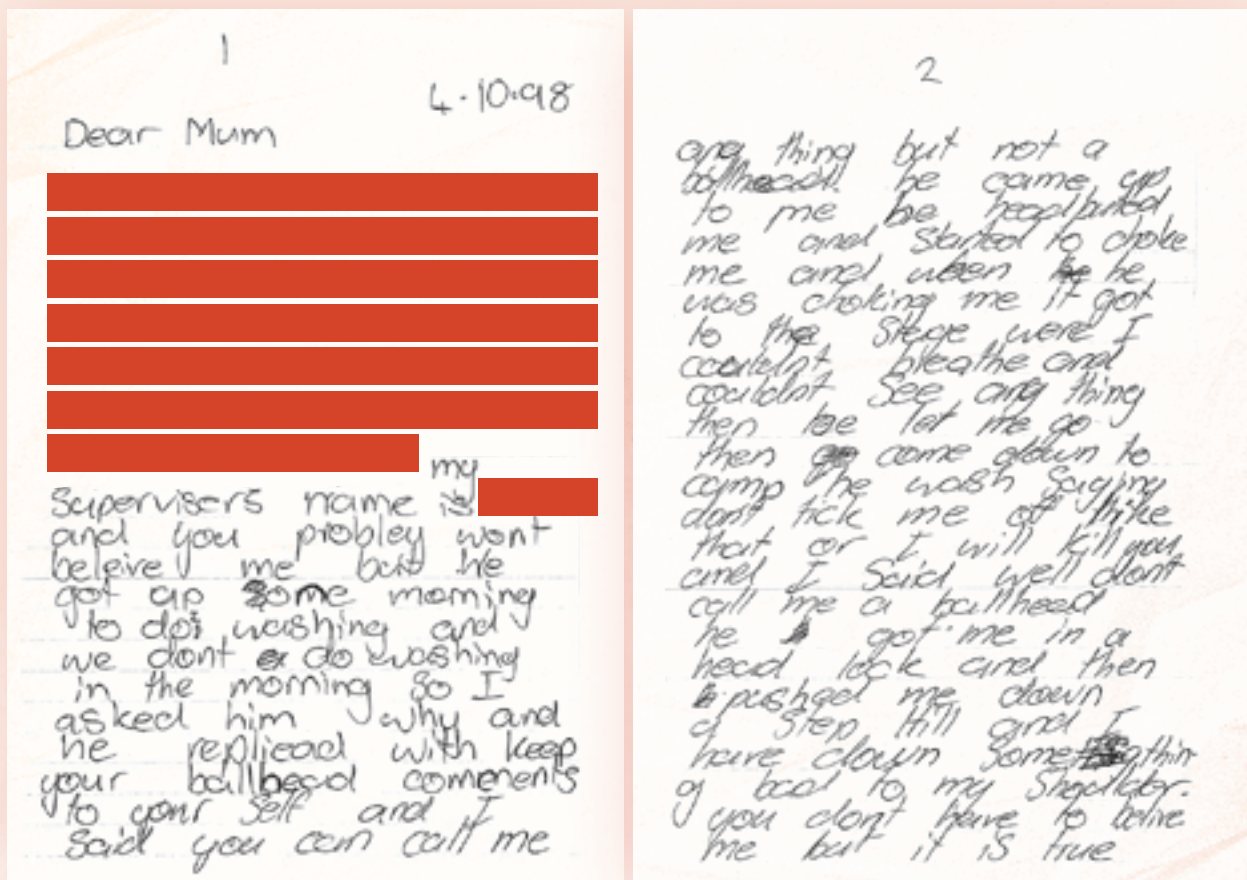 1
4.10.98
Dear Mum
my
Supervisers name is
and you probley wont
beleive me but he
got up some morning
to do washing and
we dont do washing
in the morning so I
asked him why and
he replicad with keep
your ballhead coments
to your self and I
said you can call me
2
any thing but not a
ballhead. he came up
to me he headbutted
me and started to choke
me and when he
was choking me it got
to the stege were I
couldnt breathe and
couldnt see any thing
then he let me go
then come down to
camp the wash saying
dont tick me of like
that or I will kill you
and I said well dont
call me a ballhead
he got me in a
head lock and then
pushed me down
a step hill and I
have down somethin
g bad to my shoulder.
you dont have to belive
me but it is true